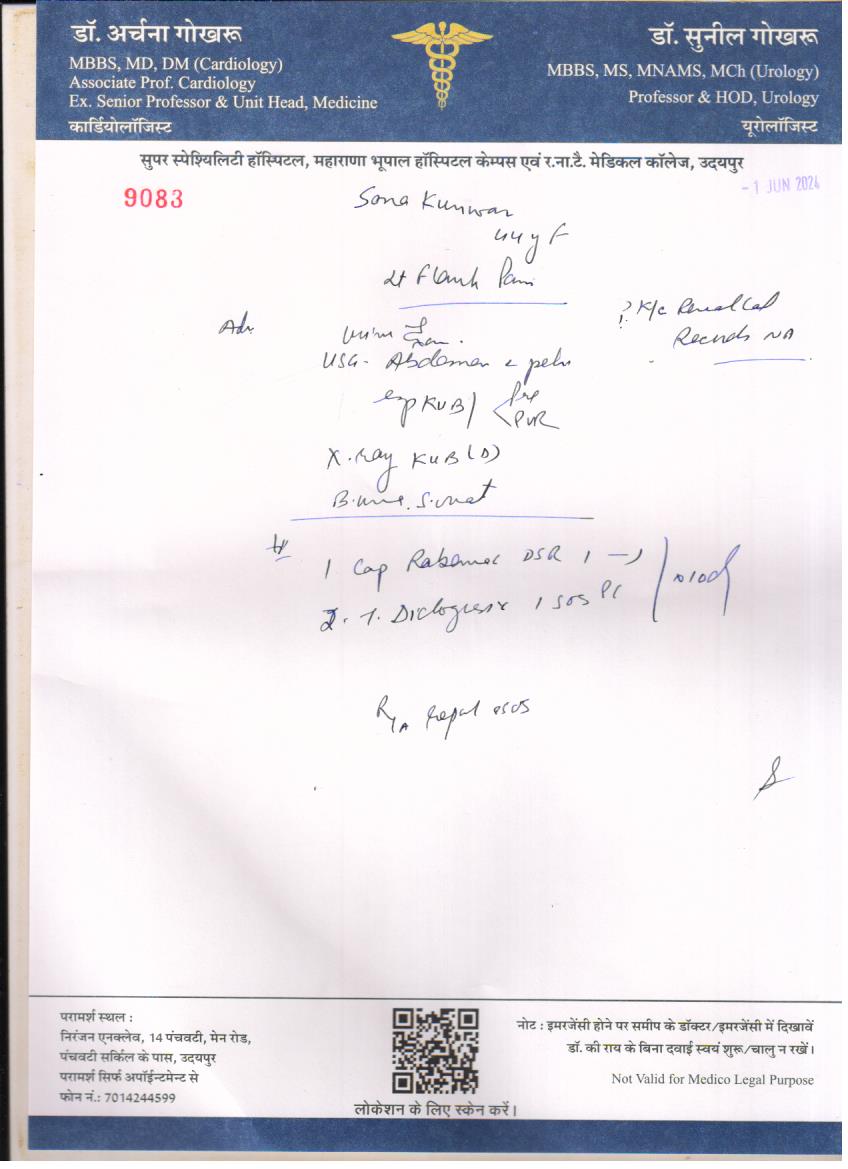 डॉ. अर्चना गोखरू
MBBS, MD, DM (Cardiology)
Associate Prof. Cardiology
Ex. Senior Professor & Unit Head, Medicine
कार्डियोलॉजिस्ट
डॉ. सुनील गोखरू
MBBS, MS, MNAMS, MCh (Urology)
Professor & HOD, Urology
यूरोलॉजिस्ट
सुपर स्पेश्यिलिटी हॉस्पिटल, महाराणा भूपाल हॉस्पिटल केम्पस एवं र.ना.टै. मेडिकल कॉलेज, उदयपुर
9083
- 1 JUN 2024
Sona Kunwar
44 y F
Flank Pain
K/c Renal Cal
Records NA
Adv.
Urine
USG - Abdomen & pelvis
KUB / Pre
PVR
X-ray KUB (D)
B. urea, S. creat
1 Cap DSR 1
2. T. 1 SOS PC
R/A
परामर्श स्थल :
निरंजन एनक्लेव, 14 पंचवटी, मेन रोड,
पंचवटी सर्किल के पास, उदयपुर
परामर्श सिर्फ अपॉईन्टमेन्ट से
फोन नं.: 7014244599
लोकेशन के लिए स्केन करें।
नोट : इमरजेंसी होने पर समीप के डॉक्टर/इमरजेंसी में दिखावें
डॉ. की राय के बिना दवाई स्वयं शुरू/चालु न रखें।
Not Valid for Medico Legal Purpose